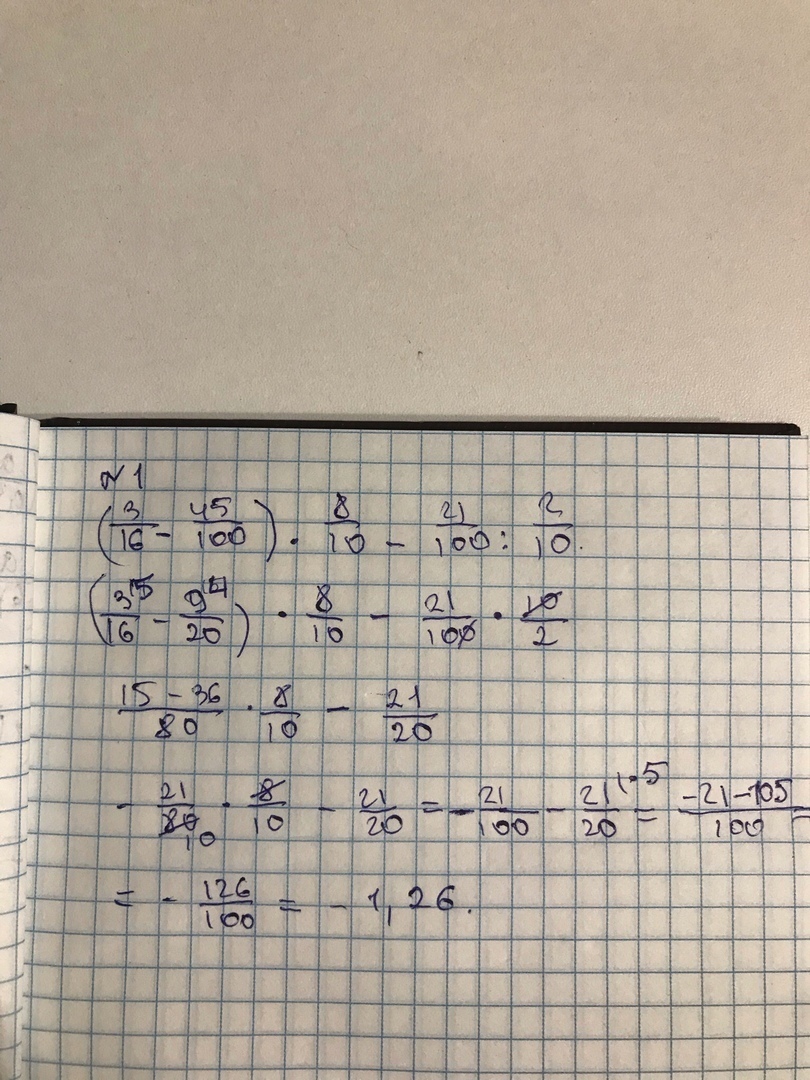 №1
(3/16 - 45/100) · 8/10 - 21/100 : 2/10.
(3^5/16 - 9^4/20) · 8/10 - 21/100 · 10/2
15 - 36/80 · 8/10 - 21/20
- 21/80 10 · 8/10 - 21/20 = - 21/100 - 21/20 (·5 = -21-105/100 =
= - 126/100 = - 1,26.